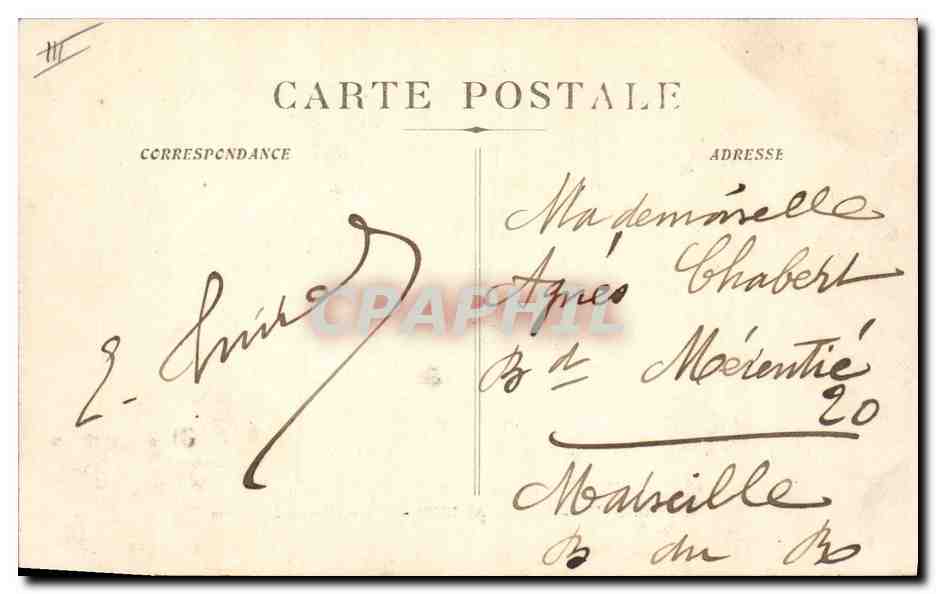 III
CARTE POSTALE
CORRESPONDANCE
ADRESSE
E.
Mademoiselle
Agnès Chabert
Bd Mérentié
20
Marseille
B du R
CPAPHIL